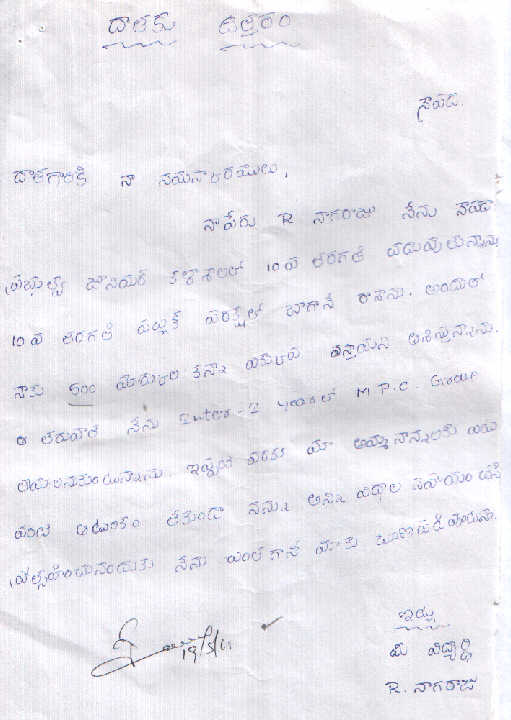 దాతకు ఉత్తరం
నాపేడ.
దాతగారికి నా నమస్కారములు,
నా పేరు R నాగరాజు నేను నాపేడ
ప్రభుత్వ జూనియర్ కళాశాలలో 10 వ తరగతి చదువుతున్నాను
10 వ తరగతి పబ్లిక్ పరీక్షలో బాగానే రాసాను. అందులో
నాకు 500 మార్కుల కన్నా ఎక్కువ వస్తాయని ఆశిస్తున్నాను.
ఆ తరువాత నేను Inter-I year లో M.P.C. Group
తీయాలనుకుంటున్నాను. ఇప్పటి వరకు మా అమ్మా నాన్నలకు ఎటు
వంటి ఆటంకం లేకుండా నన్ను అన్ని విధాల సహాయం చేసి
ప్రోత్సహించినందుకు నేను ఎంతగానో మీకు ఋణపడి వుంటాను.
ఇట్లు
మీ విద్యార్థి
R. నాగరాజు
19/5/11